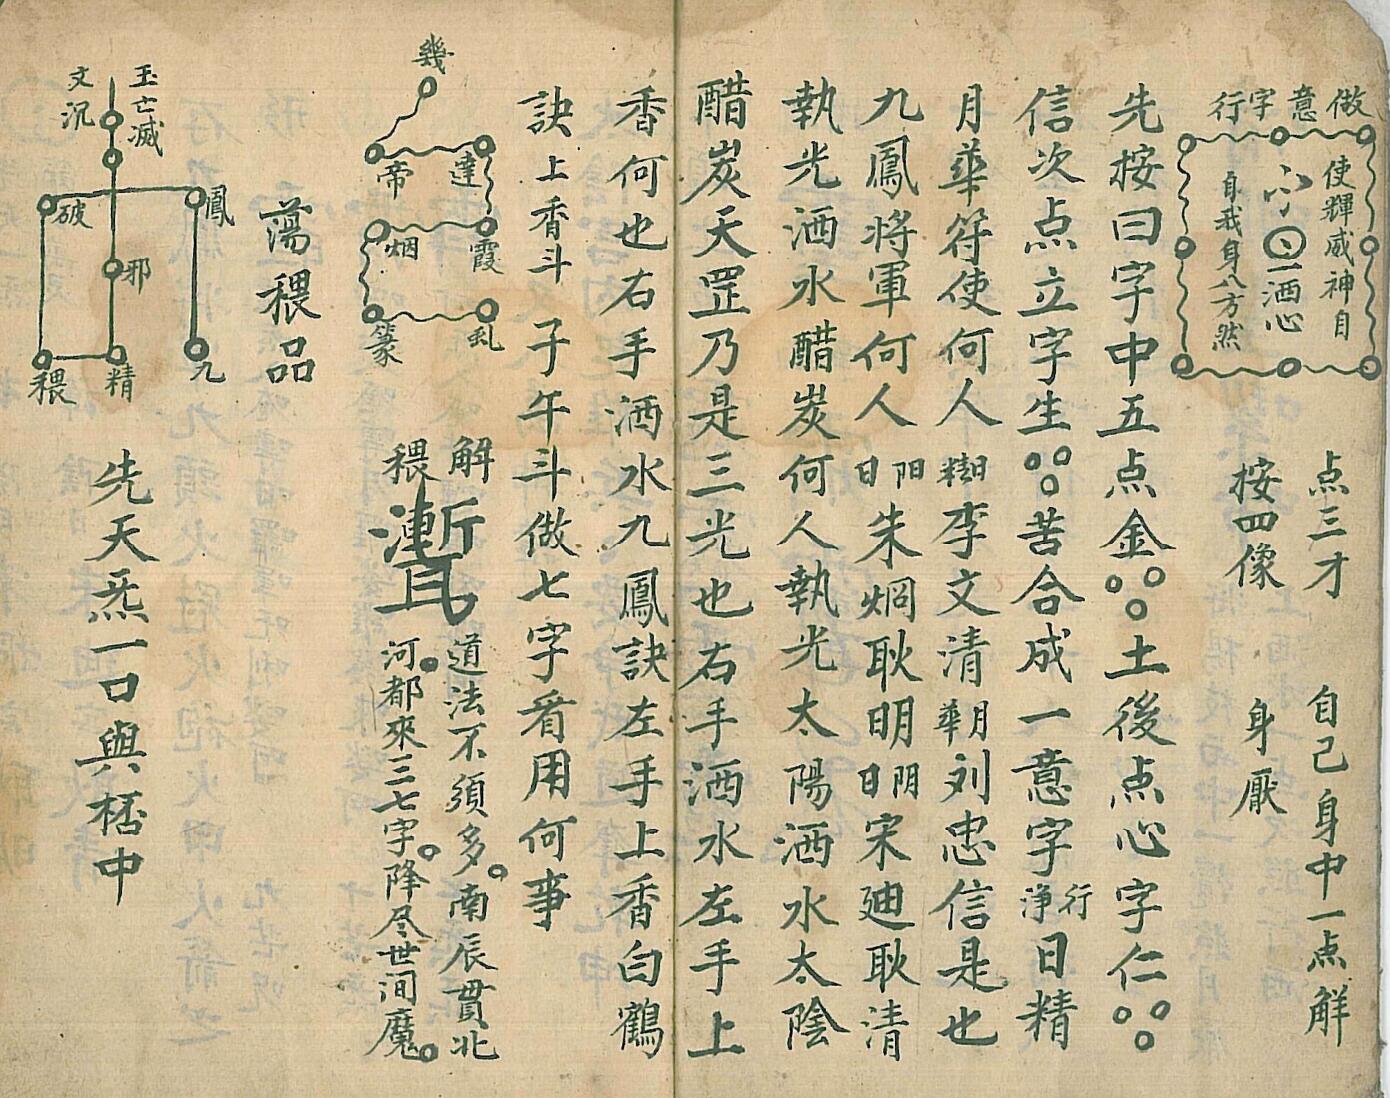 做意字行
使輝威神自
一洒心
身我身八方然
点三才
按四像
自己身中一点解
身厭
先按曰字中五点金土後点心字仁
信次点立字生苦合成一意字
行
净
日精
月華符使何人
李文清
月華
朝
刘忠信是也
九鳳將軍何人
日阳
朱烱耿明
日阴
宋廸耿清
執光洒水醋炭何人執光太陽洒水太陰
醋炭天罡乃是三光也右手洒水左手上
香何也右手洒水九鳳訣左手上香白鶴
訣上香斗子午斗做七字看用何事
幾
達
帝
霞
烟
乱
篆
解
穢
道法不須多南辰貫北
河都來三七字降尽世间魔
蕩穢品
玉亡滅
文沉
鳳
破
邪
九
精
穢
先天炁一口與梧中